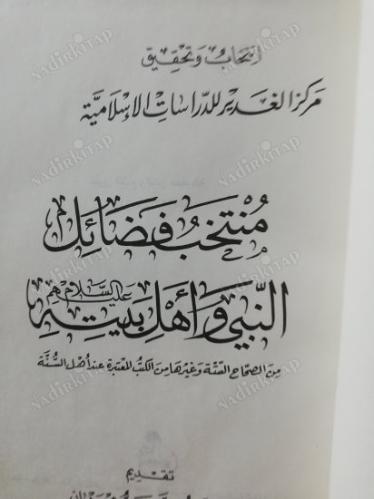 انتخاب وتحقيق
مركز الغدير للدراسات الإسلامية
منتخب فضائل
النبي وأهل بيته عليهم السلام
من الصحاح الستة وغيرها من الكتب المعتبرة عند أهل السُّنَّة
تقديم